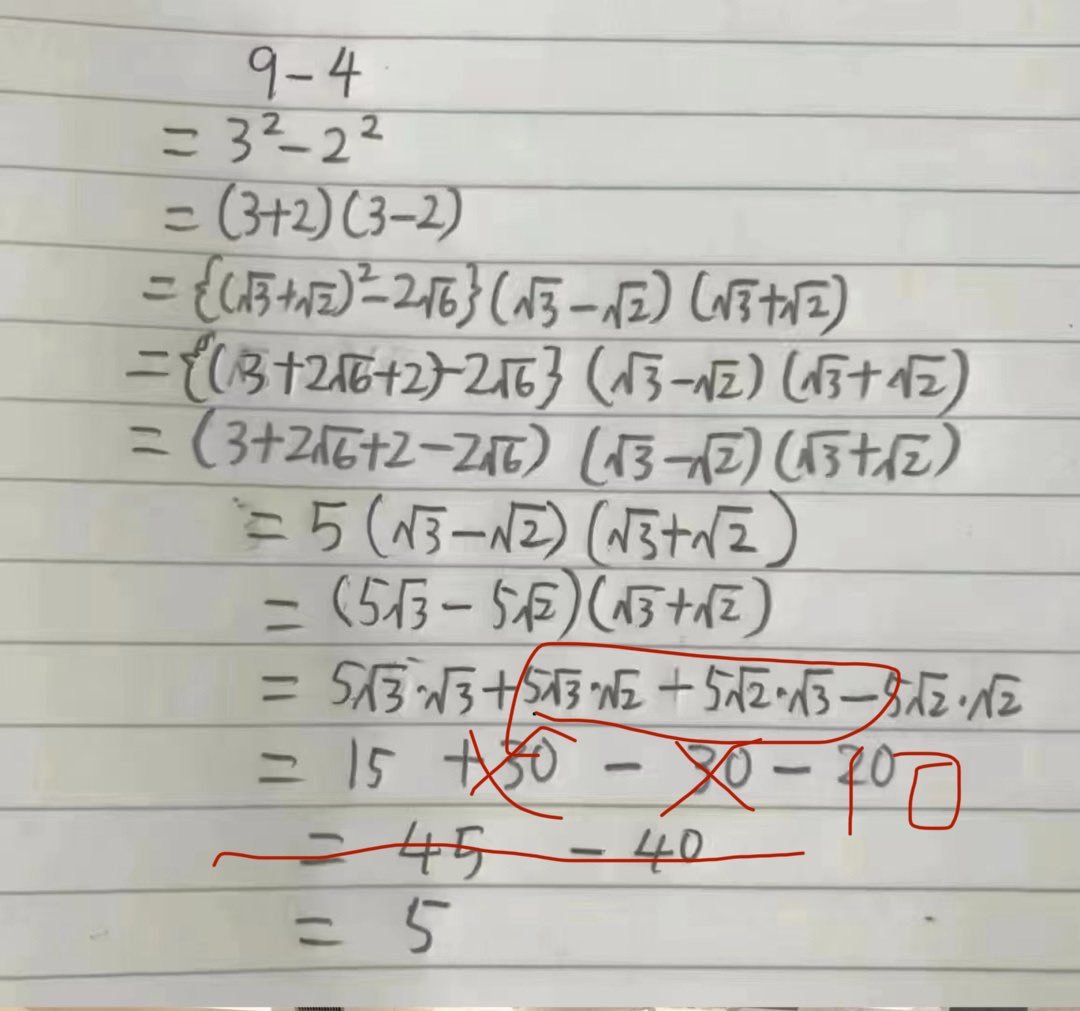 9-4
= 3²-2²
= (3+2)(3-2)
= {(√3+√2)²-2√6}(√3-√2)(√3+√2)
= {(3+2√6+2)-2√6}(√3-√2)(√3+√2)
= (3+2√6+2-2√6)(√3-√2)(√3+√2)
= 5(√3-√2)(√3+√2)
= (5√3-5√2)(√3+√2)
= 5√3·√3+5√3·√2+5√2·√3-5√2·√2
= 15 +30 - 30 - 20 10
= 45 - 40
= 5